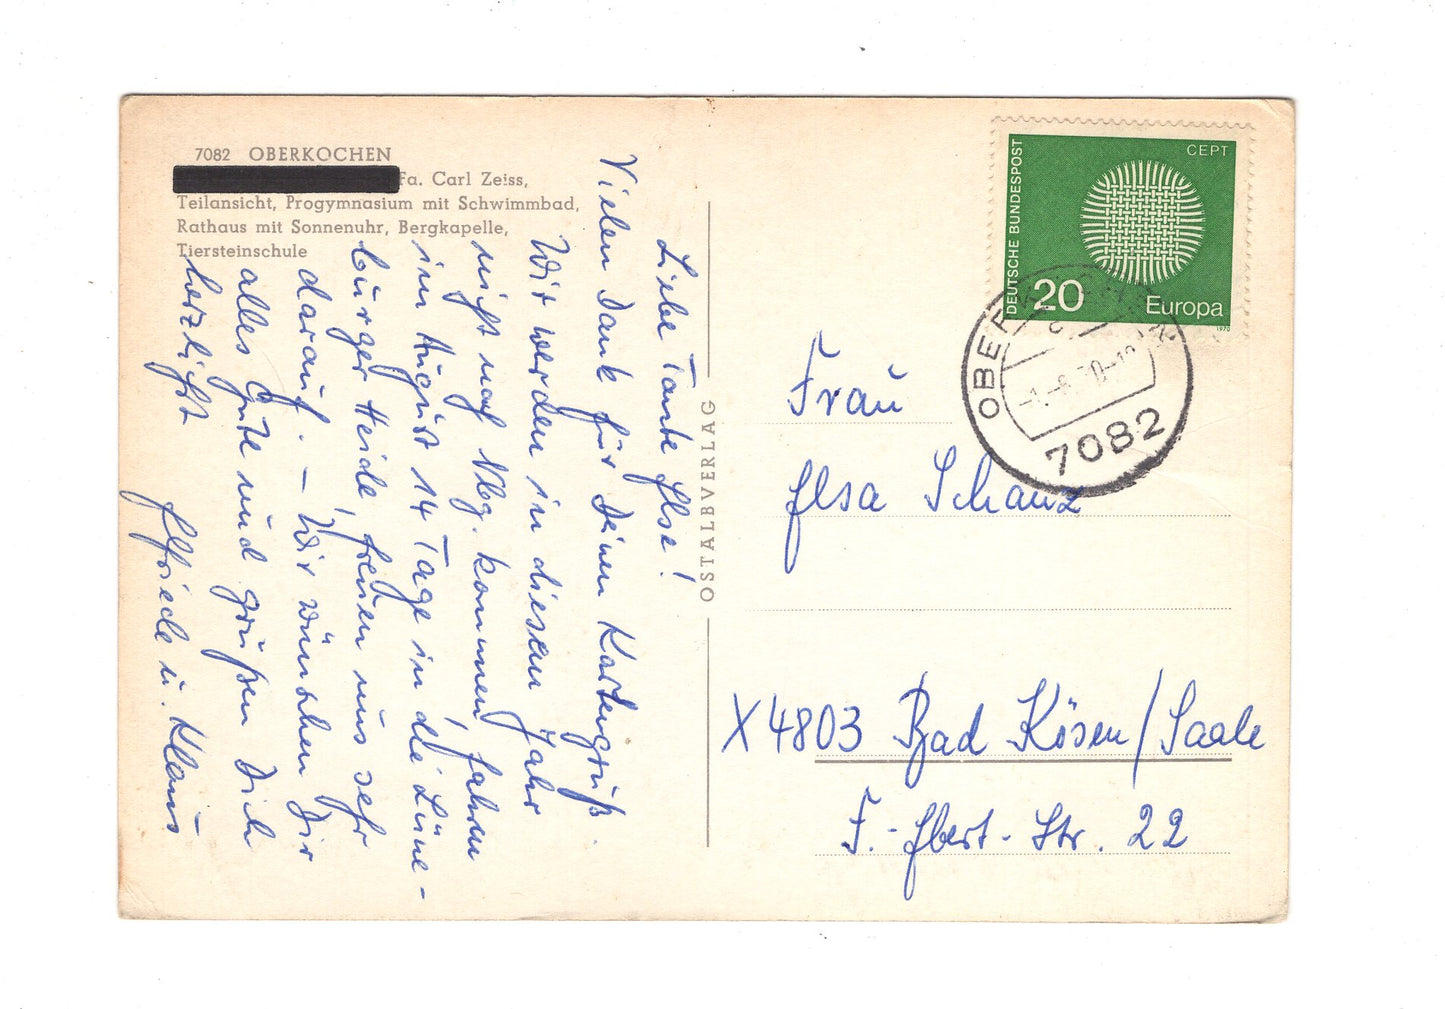 7082 OBERKOCHEN
Fa. Carl Zeiss,
Teilansicht, Progymnasium mit Schwimmbad,
Rathaus mit Sonnenuhr, Bergkapelle,
Tiersteinschule
Liebe Tante Else!
Vielen Dank für Deinen Kartengruß.
Wir werden in diesem Jahr
nicht nach Nbg. kommen, fahren
im August 14 Tage in die Lüne-
burger Heide, freuen uns sehr
darauf. – Wir wünschen Dir
alles Gute und grüßen Dich
herzlichst
Elfriede u. Klaus
OSTALBVERLAG
DEUTSCHE BUNDESPOST
CEPT
20
Europa
1970
7082
Frau
Elsa Schanz
X 4803 Bad Kösen/Saale
F.-Ebert-Str. 22